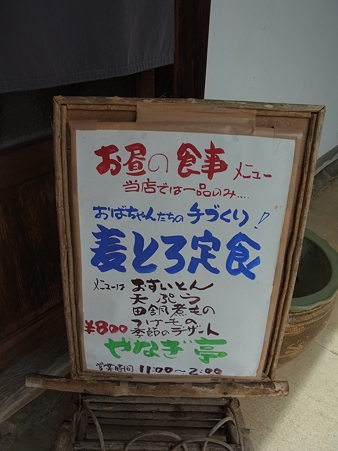 お昼の食事メニュー
当店では一品のみ....
おばちゃんたちの手づくり!
麦とろ定食
メニューは おすいとん
天ぷら
田舎煮もの
つけもの
¥800 季節のデザート
やなぎ亭
営業時間 11:00〜2:00